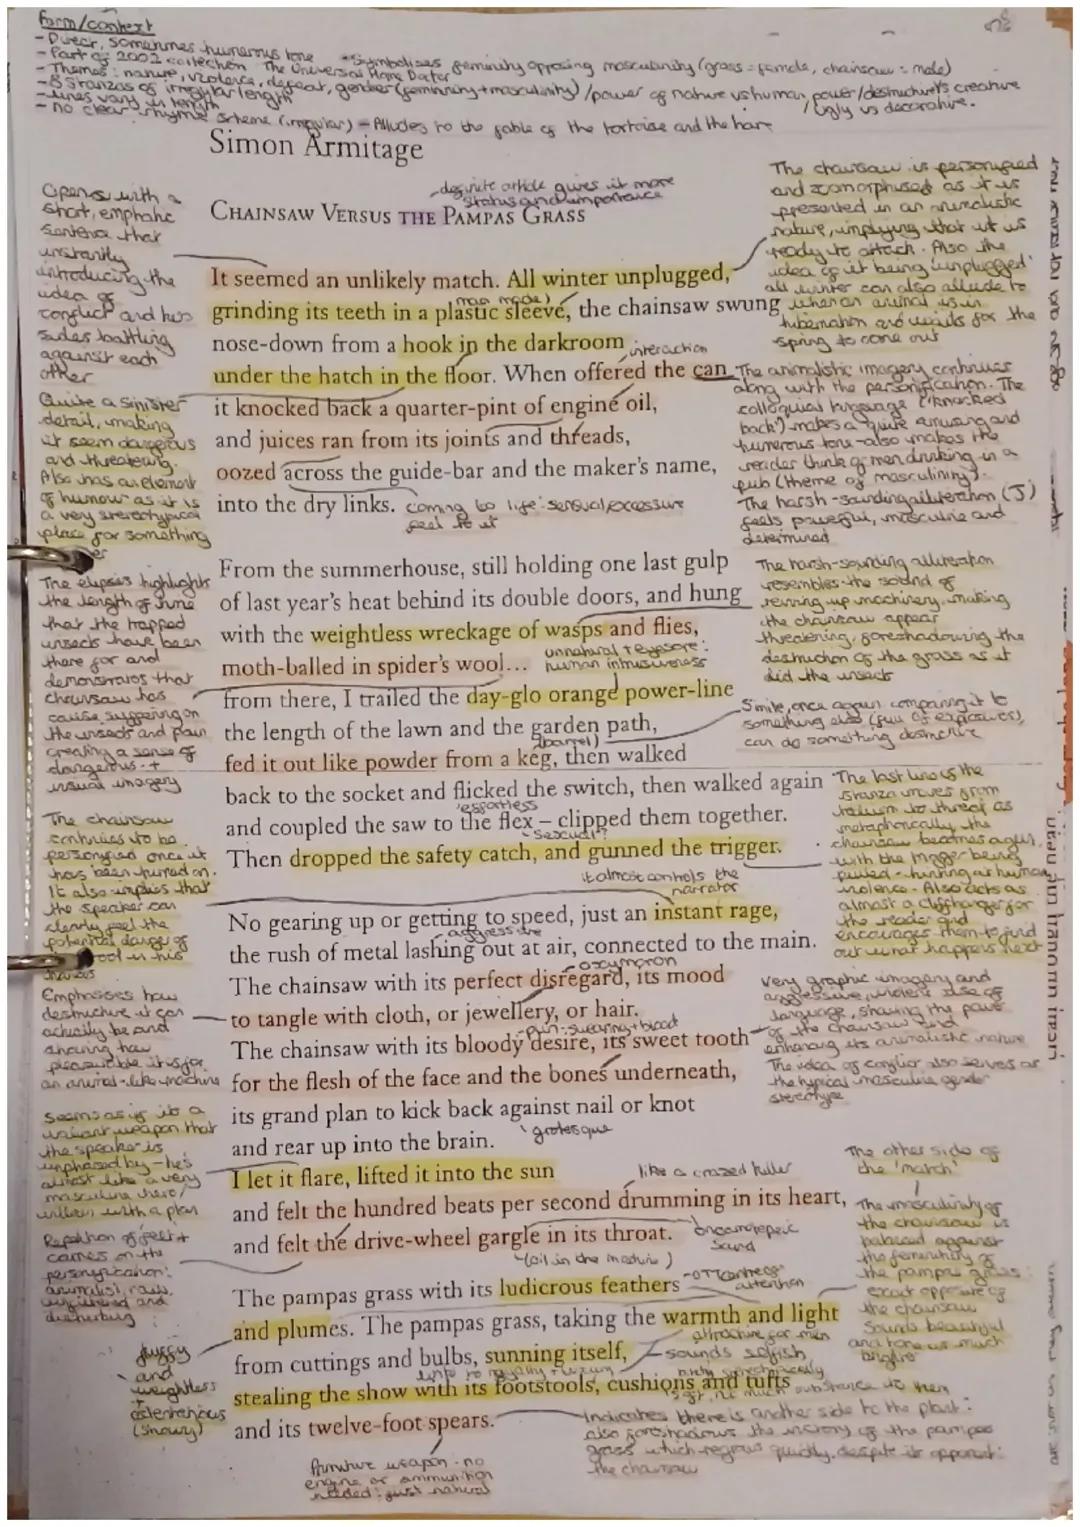 form/context
- Direct, sometimes humorous tone
- Part of 2002 collection The Universal Home Doctor
- Themes: nature, violence, defeat, gender (femininity + masculinity) / power of nature vs human power / destructive vs creative
- 8 stanzas of irregular length
/ ugly vs decorative.
- lines vary in length
- no clear rhyme scheme (irregular) - Alludes to the fable of the tortoise and the hare
Symbolises feminity opposing masculinity (grass = female, chainsaw = male)
Simon Armitage
- definite article gives it more
status and importance
CHAINSAW VERSUS THE PAMPAS GRASS
It seemed an unlikely match. All winter unplugged,
(man made)
grinding its teeth in a plastic sleeve, the chainsaw swung
nose-down from a hook in the darkroom
interaction
under the hatch in the floor. When offered the can
it knocked back a quarter-pint of engine oil,
and juices ran from its joints and threads,
oozed across the guide-bar and the maker's name,
into the dry links.
coming to life: sensual/excessive
feel to it
From the summerhouse, still holding one last gulp
of last year's heat behind its double doors, and hung
with the weightless wreckage of wasps and flies,
moth-balled in spider's wool...
unnatural + eyesore:
human intrusiveness
from there, I trailed the day-glo orange power-line
the length of the lawn and the garden path,
(barrel)
fed it out like powder from a keg, then walked
back to the socket and flicked the switch, then walked again
effortless
and coupled the saw to the flex – clipped them together.
sexual?
Then dropped the safety catch, and gunned the trigger.
it almost controls the
narrator
No gearing up or getting to speed, just an instant rage,
aggressive
the rush of metal lashing out at air, connected to the main.
oxymoron
The chainsaw with its perfect disregard, its mood
to tangle with cloth, or jewellery, or hair.
pun: swearing + blood
The chainsaw with its bloody desire, its sweet tooth
for the flesh of the face and the bones underneath,
its grand plan to kick back against nail or knot
and rear up into the brain.
grotesque
I let it flare, lifted it into the sun
like a crazed killer
and felt the hundred beats per second drumming in its heart,
and felt the drive-wheel gargle in its throat.
onomatopoeic
sound
(oil in the machine)
The pampas grass with its ludicrous feathers
- OTT
attention
and plumes. The pampas grass, taking the warmth and light
attractive for men
from cuttings and bulbs, sunning itself,
sounds selfish
stealing the show with its footstools, cushions and tufts
and its twelve-foot spears.
Primitive weapon - no
engine or ammunition
needed: just natural
Opens with a
short, emphatic
sentence that
instantly
introducing the
idea of
conflict and two
sides battling
against each
other
Quite a sinister
detail, making
it seem dangerous
and threatening.
Also has an element
of humour as it is
a very stereotypical
place for something
The elipsis highlights
the length of time
that the trapped
insects have been
there for and
demonstrates that
chainsaw has
cause suffering on
the insects and pain
creating a sense of
dangerous +
visual imagery
The chainsaw
continues to be
personified once it
has been turned on.
It also implies that
the speaker can
clearly feel the
potential danger of
tool in his
Emphasises how
destructive it can
actually be and
showing how
pleasurable it is for
an animal-like machine
Seems as if its a
weapon that
the speaker is
unphased by - he's
almost like a very
masculine hero/
villain with a plan
Repetition of felt +
carries on the
personification:
animalist, raw,
and
disturbing
fluffy
and
weightless
(showy)
The chainsaw is personified
and zoomorphised as it is
presented in an animalistic
nature, implying that it is
ready to attack. Also the
idea of it being 'unplugged'
all winter can also allude to
when an animal is in
hibernation and waits for the
spring to come out
The animalistic imagery continues
along with the personification. The
colloquial language ('knocked
back') makes a quite amusing and
humerous tone - also makes the
reader think of men drinking in a
pub (theme of masculinity).
The harsh-sounding alliteration (J)
feels powerful, masculine and
determined
The harsh-sounding alliteration
resembles the sound of
revving up machinery, making
the chainsaw appear
threatening, foreshadowing the
destruction of the grass as it
did the insects
Simile, once again comparing it to
something else (full of explosives),
can do something destructive
The last line of the
stanza moves from
tedium to threat as
metaphorically the
chainsaw becomes a gun,
with the trigger being
pulled - hinting at human
violence. Also acts as
almost a cliffhanger for
the reader and
encourages them to find
out what happens next
very graphic imagery and
aggressive, violent use of
language, showing the power
of the chainsaw and
enhancing its animalistic nature
The idea of conflict also serves as
the typical masculine gender
stereotype
The other side of
the 'match'
The masculinity of
the chainsaw is
balanced against
the femininity of
the pampas grass:
exact opposite of
the chainsaw
Sounds beautiful
and tone is much
brighter
Indicates there is another side to the plant:
also foreshadows the victory of the pampas
grass which regrows quickly, despite its opponent:
the chainsaw